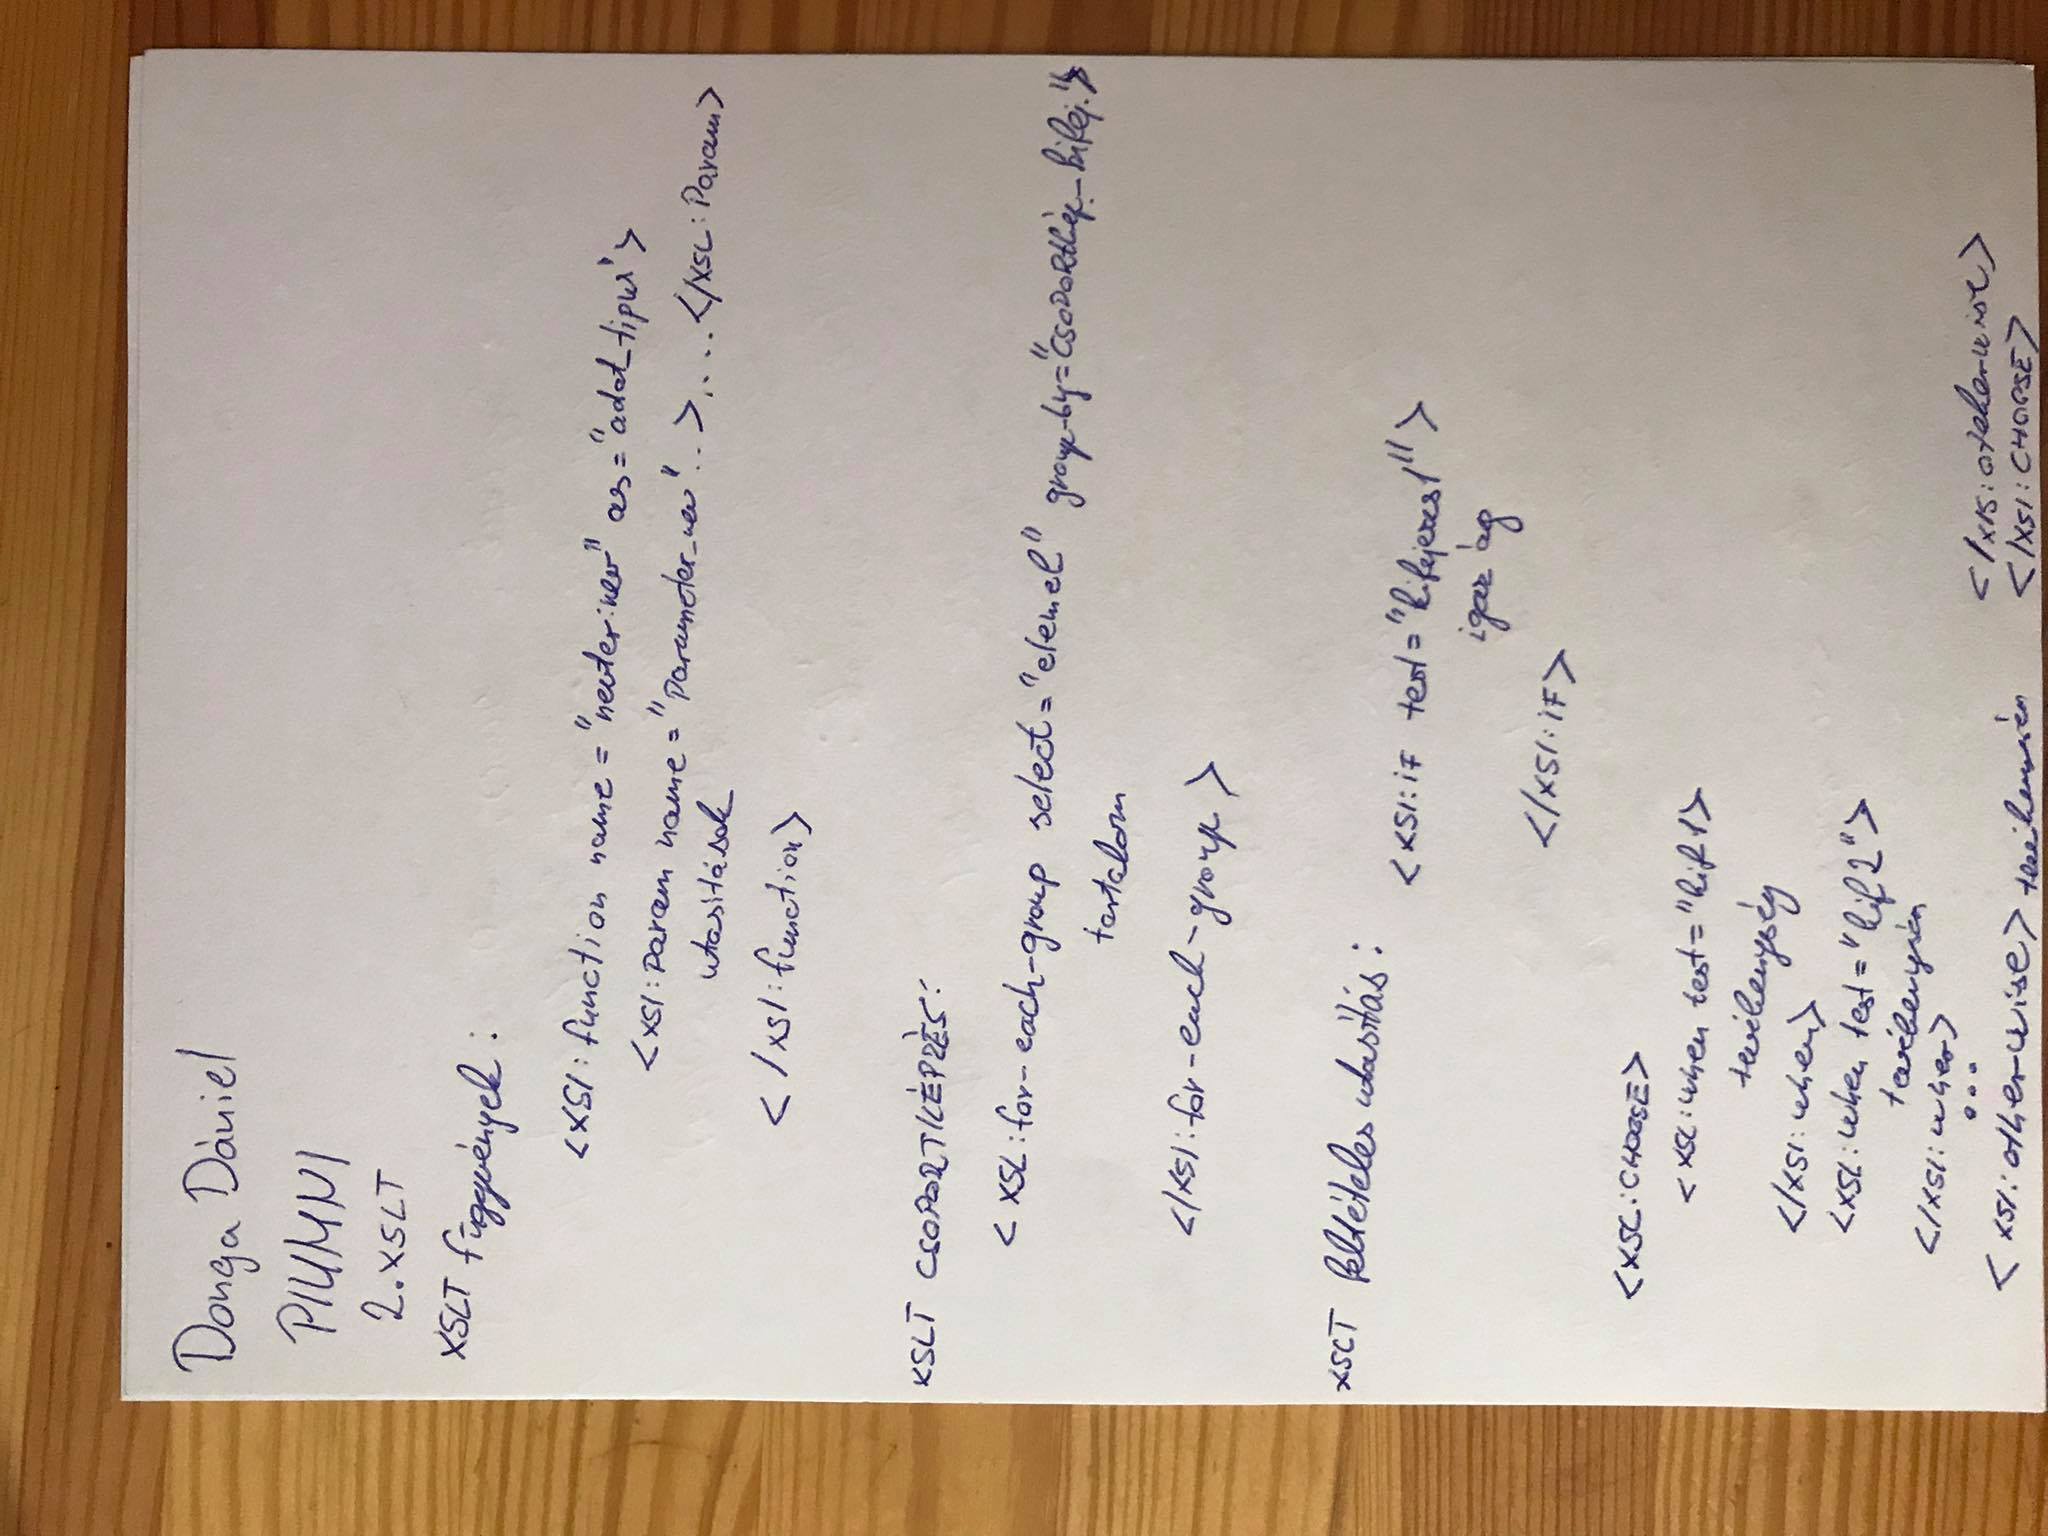 Donga Dániel
PIUMNI
2.XSLT
XSLT függvények:
<XSl:function name="nevter:nev" as="adat_tipus">
<xsl:param name="Parameter_nev"..>....</xsl:Param>
utasítások
</xsl:function>
XSLT CSOPORTKÉPZÉS:
<XSL:for-each-group select="elemek" group-by="CSOPORTkép_kifej.">
tartalom
</XSl:for-each-group>
XSLT feltételes utasítás:
<XSl:if test="kifejezes1">
igaz ág
</XSl:if>
<XSL:CHOOSE>
<XSL:when test="kif1>
tevékenység
</XSl:when>
<XSL:when test="kif2">
tevékenység
</XSl:when>
...
<XSl:otherwise> tevékenység
</xls:oteherwise>
</XSl:CHOOSE>